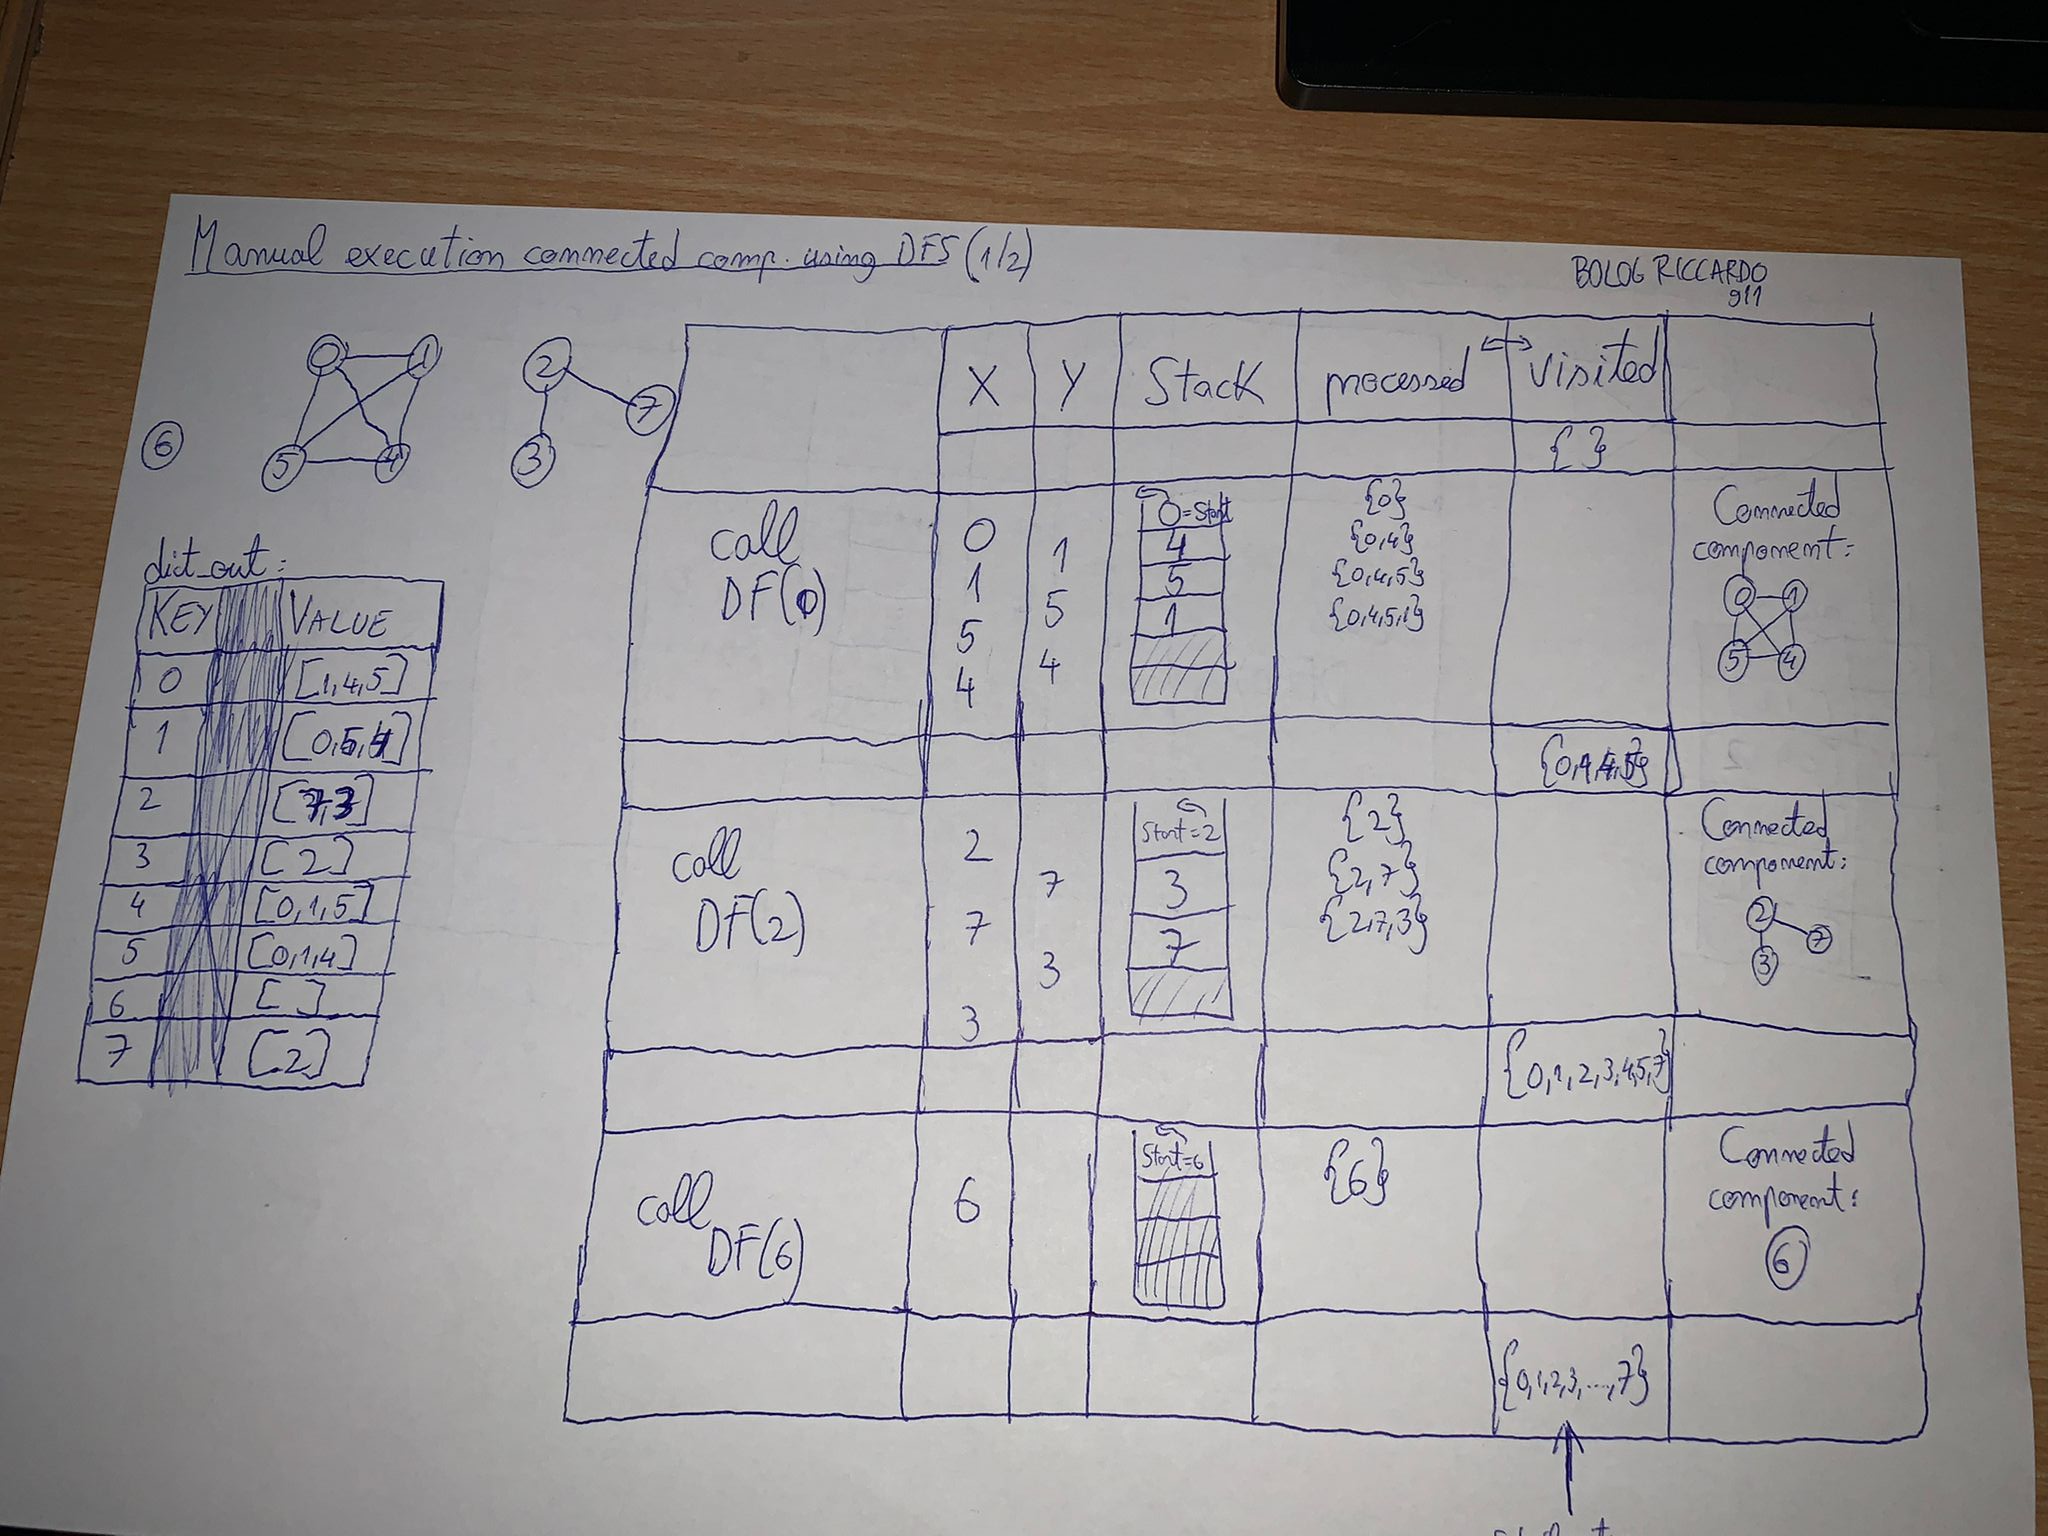 Manual execution connected comp. using DFS (1/2)
BOLOG RICCARDO
911
0 1 2 7
6 5 4 3
dict_out:
KEY VALUE
0 [1,4,5]
1 [0,5,4]
2 [7,3]
3 [2]
4 [0,1,5]
5 [0,1,4]
6 [ ]
7 [2]
X Y Stack processed ↔ visited
{ }
call
DF(0)
0
1
5
4
1
5
4
0=Start
4
5
1
{0}
{0,4}
{0,4,5}
{0,4,5,1}
Connected
component:
0 1
5 4
{0,1,4,5}
call
DF(2)
2
7
3
7
3
Start=2
3
7
{2}
{2,7}
{2,7,3}
Connected
component:
2 7
3
{0,1,2,3,4,5,7}
call
DF(6)
6
Start=6
{6}
Connected
component:
6
{0,1,2,3,...,7}